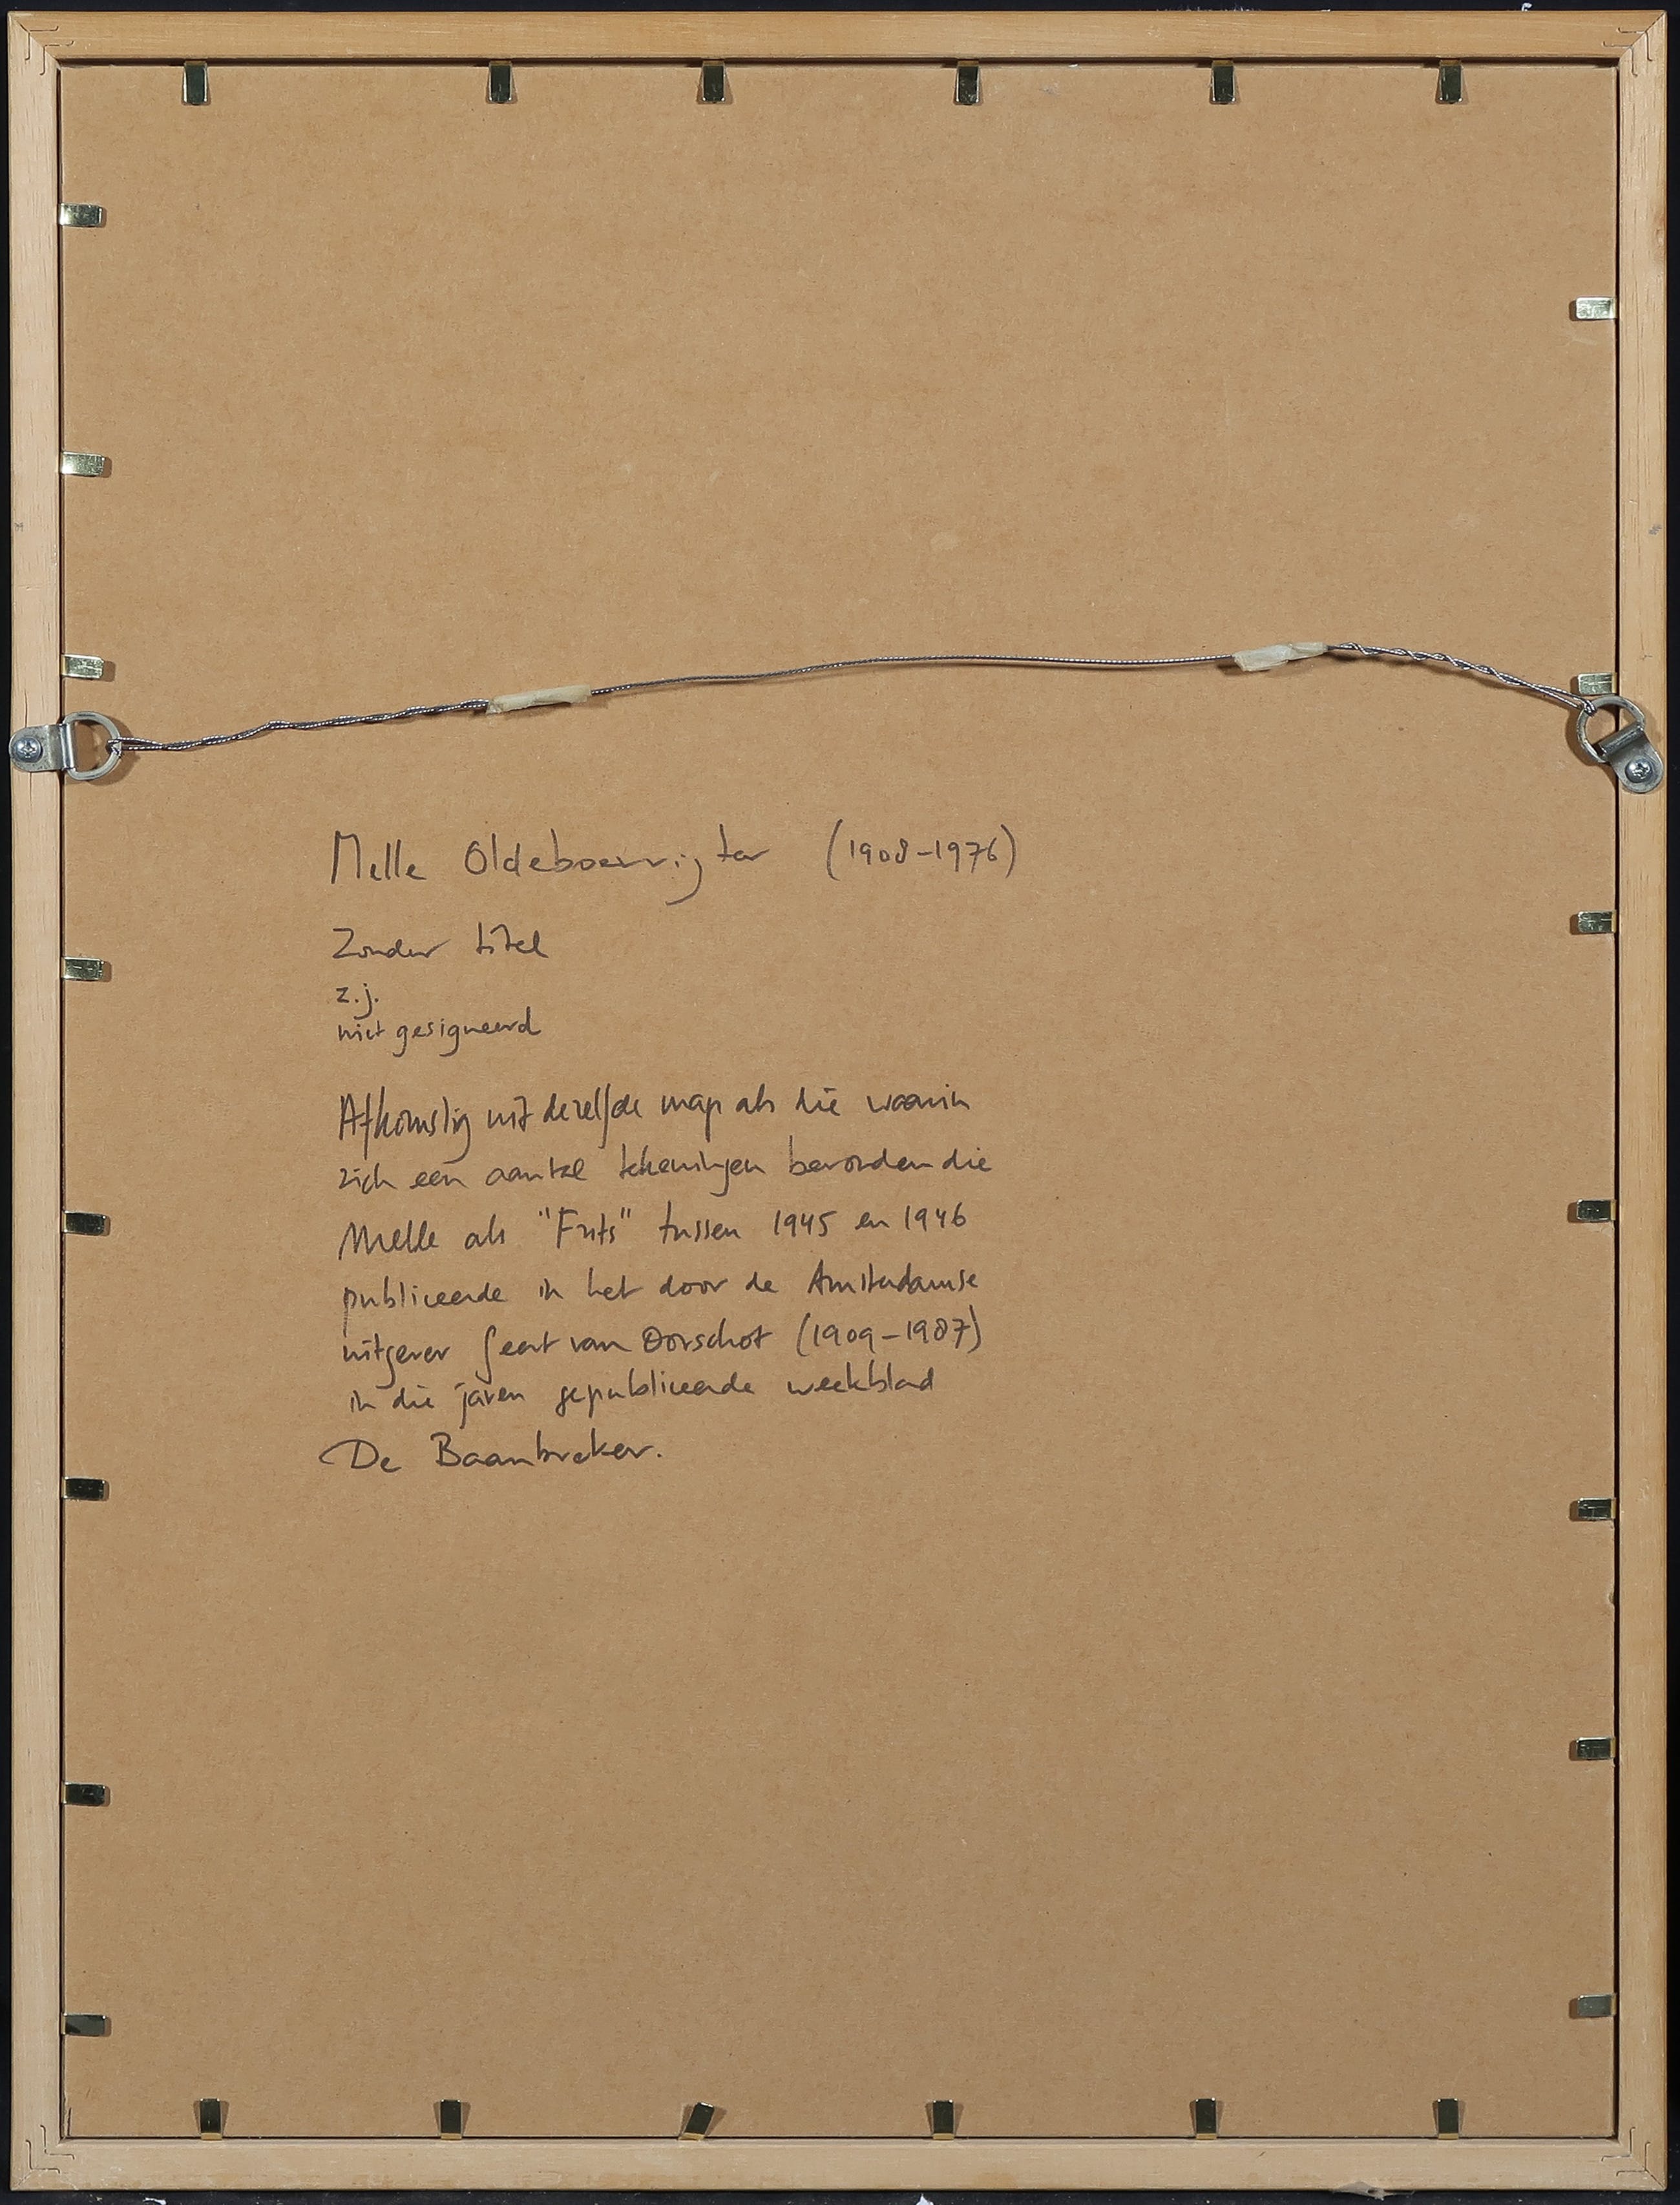 Melle Oldeboerrigter (1908-1976)
Zonder titel
z.j.
niet gesigneerd
Afkomstig uit dezelfde map als die waarin
zich een aantal tekeningen bevonden die
Melle als "Frits" tussen 1945 en 1946
publiceerde in het door de Amsterdamse
uitgever Geert van Oorschot (1909-1987)
in die jaren gepubliceerde weekblad
De Baanbreker.